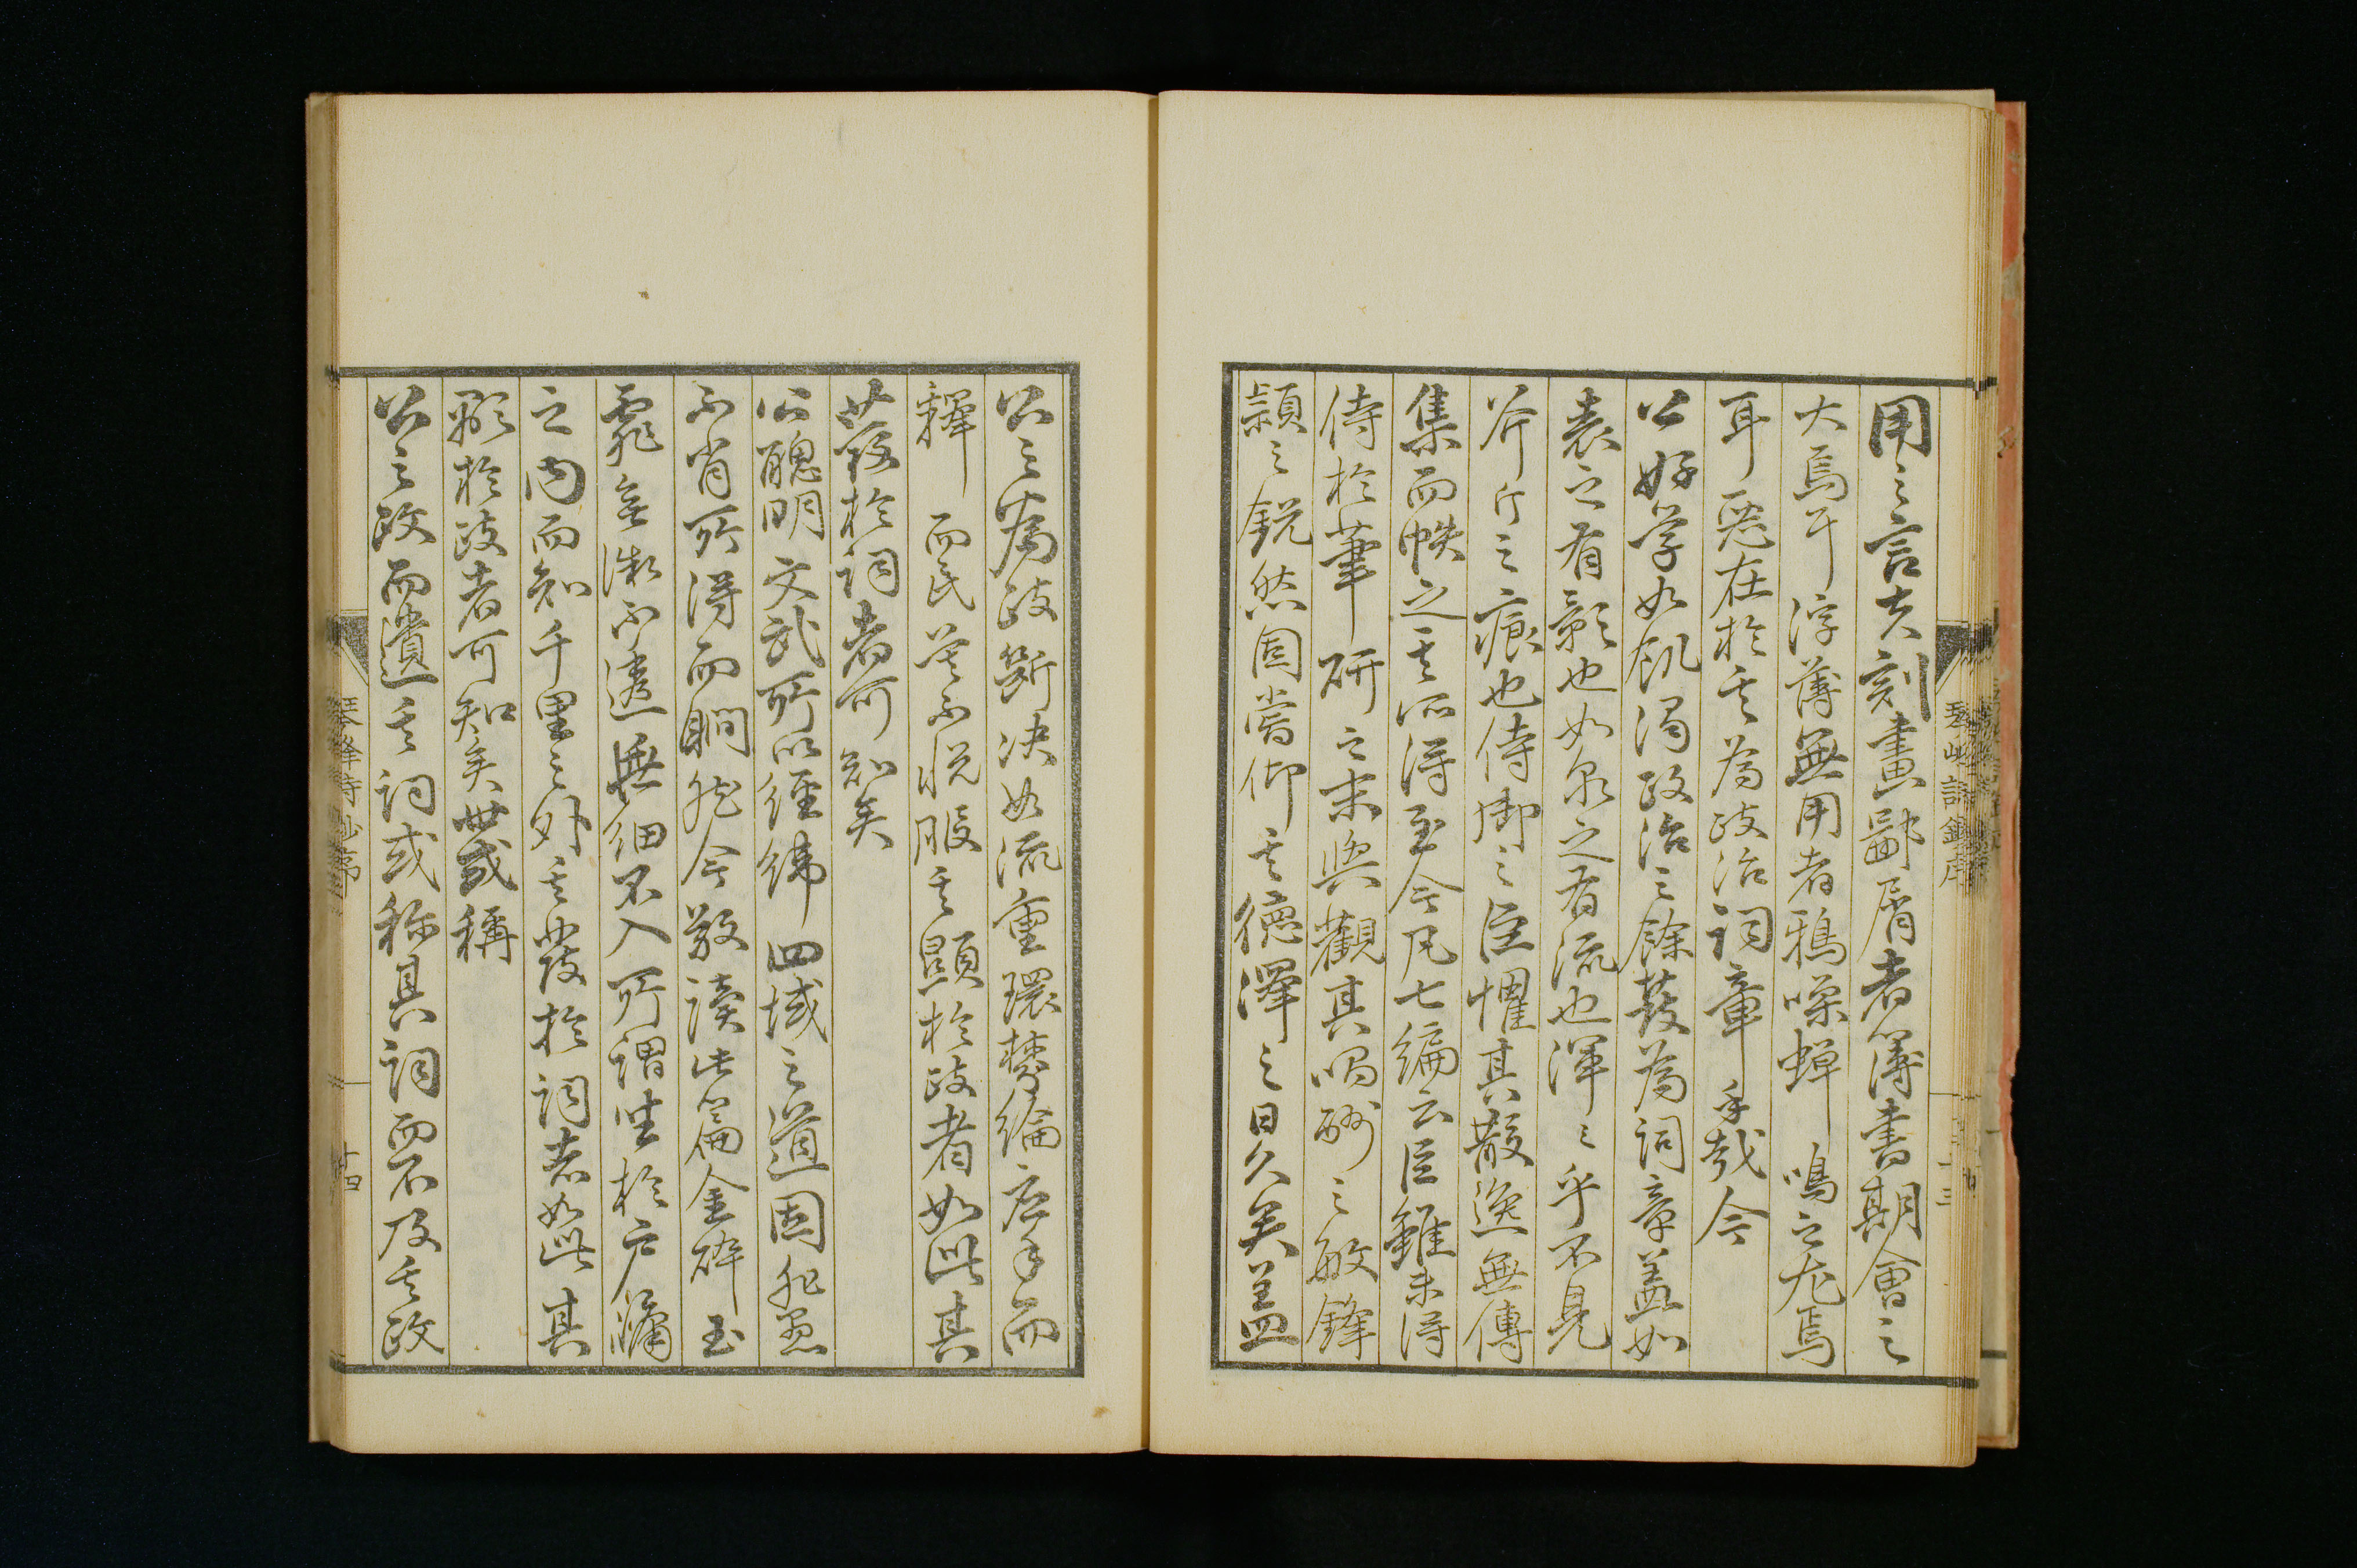 用之言者刻畫鄙屑者簿書期會之
大焉耳浮薄無用者鴉噪蟬鳴之尤焉
耳惡在於其為政治詞章乎哉今
公好学如飢渴政治之餘發為詞章蓋如
表之有影也如泉之有流也渾々乎不見
斧斤之痕也侍御之臣懼其散逸無傳
集而帙之其所得至今凡七編云臣雖未得
侍於筆研之末與觀其吮硎之敏鋒
穎之銳然固嘗仰其德澤之日久矣蓋
公之為政斷決如流重環棼綸應手而
釋而民莫不悅服其顕於政者如此其
發於詞者可知矣
公聰明文武所以經緯四域之道固非愚
不肖所得而瞷然今敬讀此篇金碎玉
霏無微不遺無細不入所謂坐於戶牖
之內而知千里之外其發於詞者如此其
顯於政者可知矣世或稱
公之政而遺其詞或称其詞而不及其政
詩鈔序
十三
十四